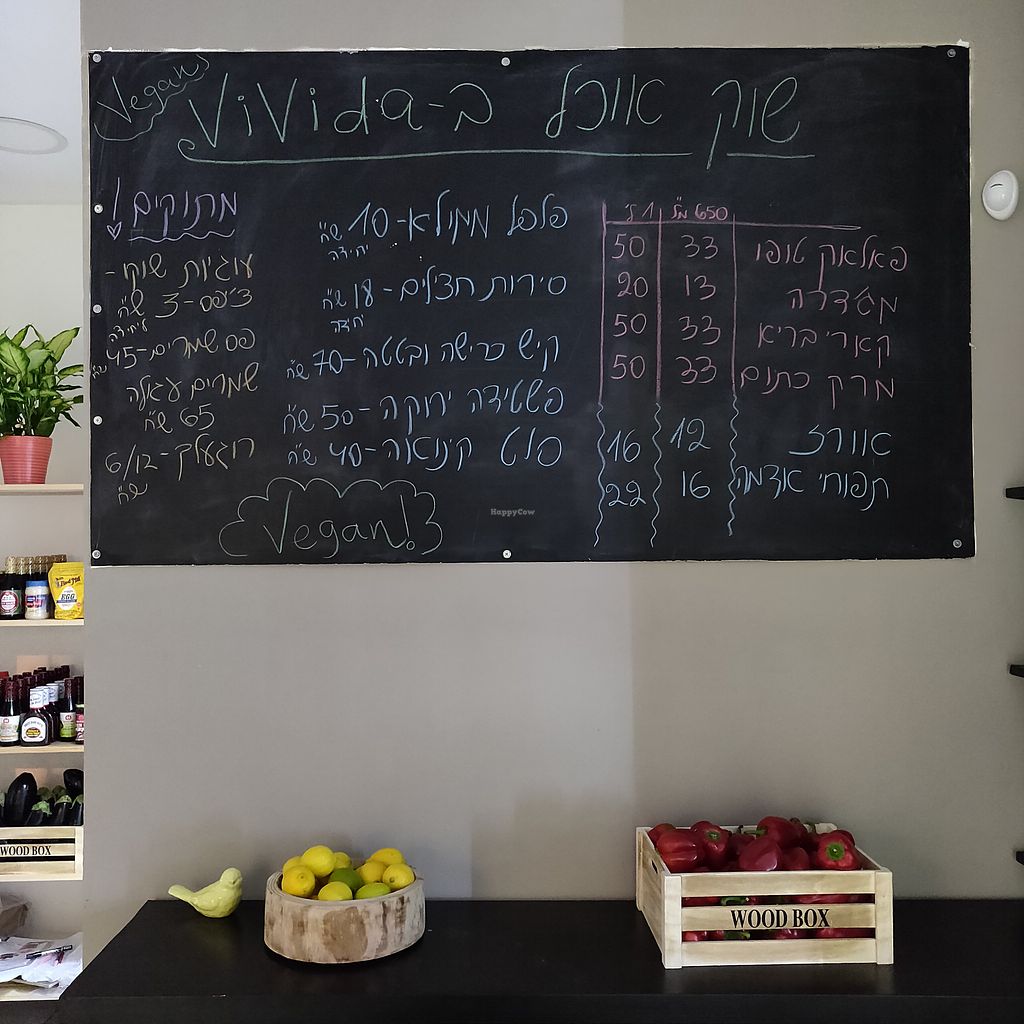 Vegan
שוק אוכל ב-ViVida
650 מ"ל 1 ל'
פאלאק טופו 33 50
מג'דרה 13 20
קארי בריא 33 50
מרק כתום 33 50
אורז 12 16
תפוחי אדמה 16 22
פלפל ממולא-10 ש"ח
יחידה
סירות חצילים-18 ש"ח
יחידה
קיש כרישה ובטטה-70 ש"ח
פשטידה ירוקה-50 ש"ח
סלט קינואה-40 ש"ח
Vegan!
מתוקים!
עוגיות שוקו-
צ'יפס-3 ש"ח
ליחידה
פס שמרים-45 ש"ח
שמרים עגולה
65 ש"ח
רוגעלך-6/12
ש"ח
HappyCow
EGG
WOOD BOX
WOOD BOX